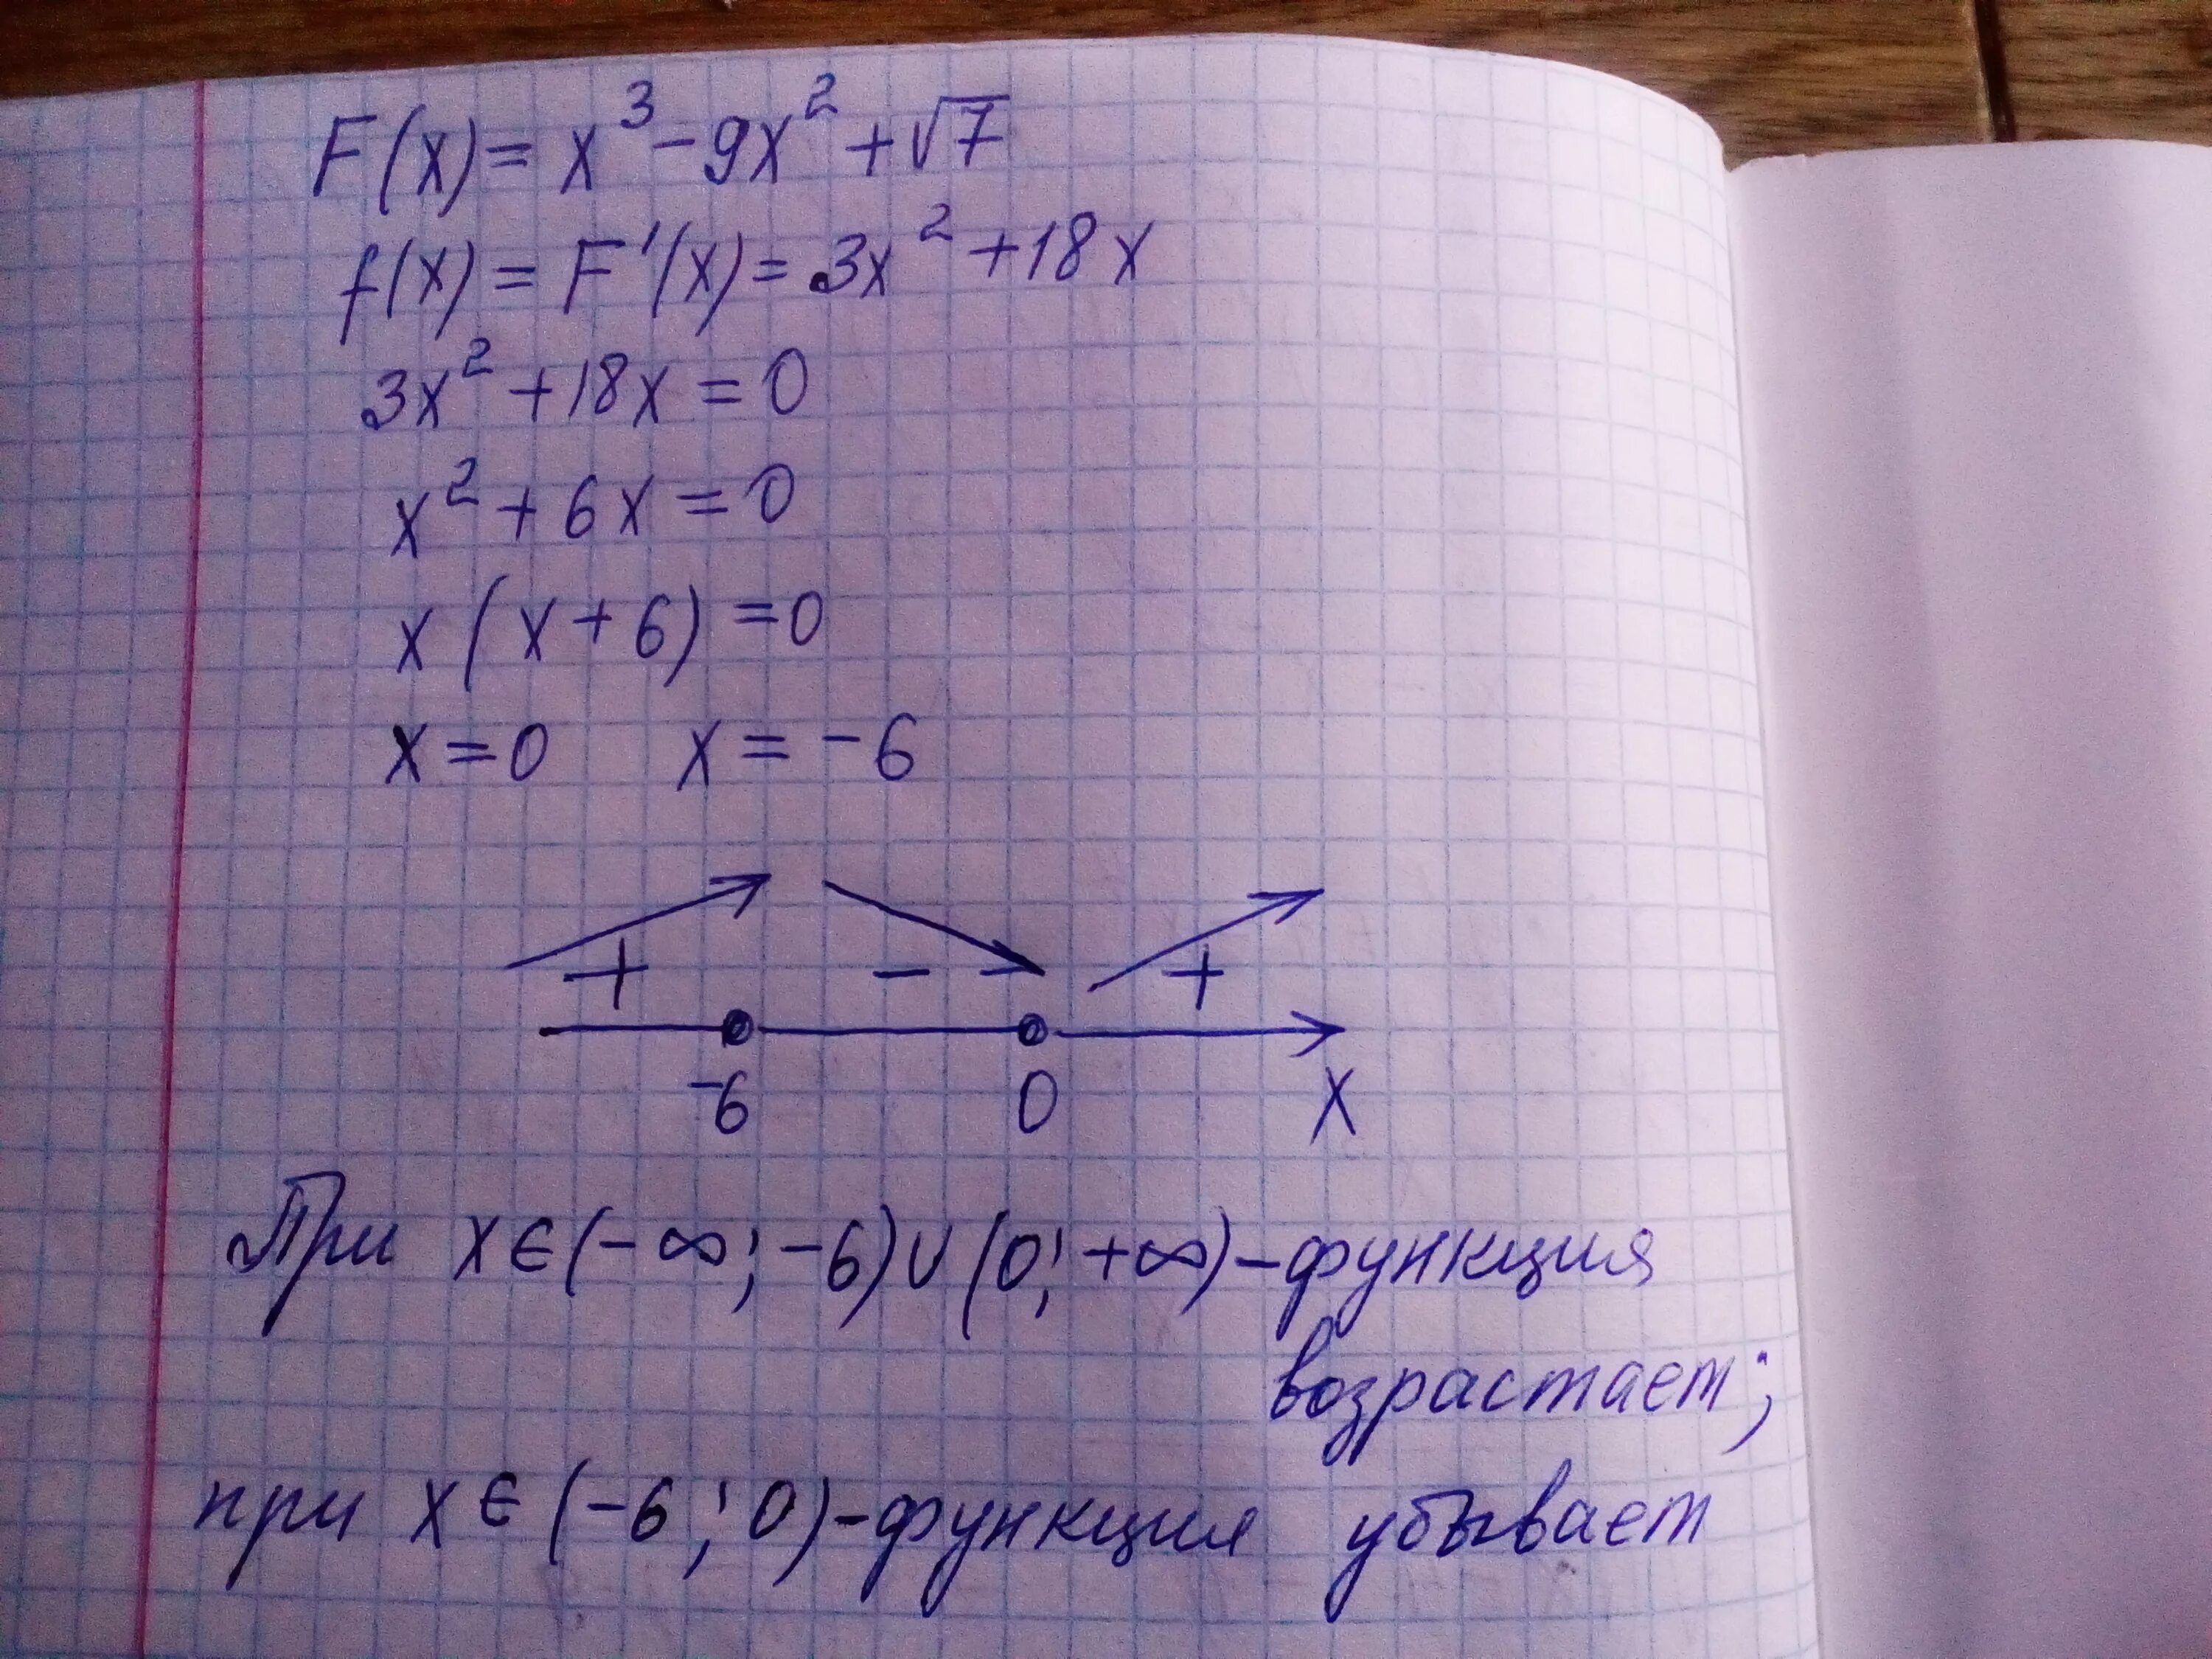 F(x) = x³ - 9x² + √7
f(x) = F'(x) = 3x² + 18x
3x² + 18x = 0
x² + 6x = 0
x (x + 6) = 0
x = 0 x = -6
+ - - +
-6 0 X
При x ∈ (-∞; -6) ∪ (0; +∞) - функция
возрастает;
при x ∈ (-6; 0) - функция убывает